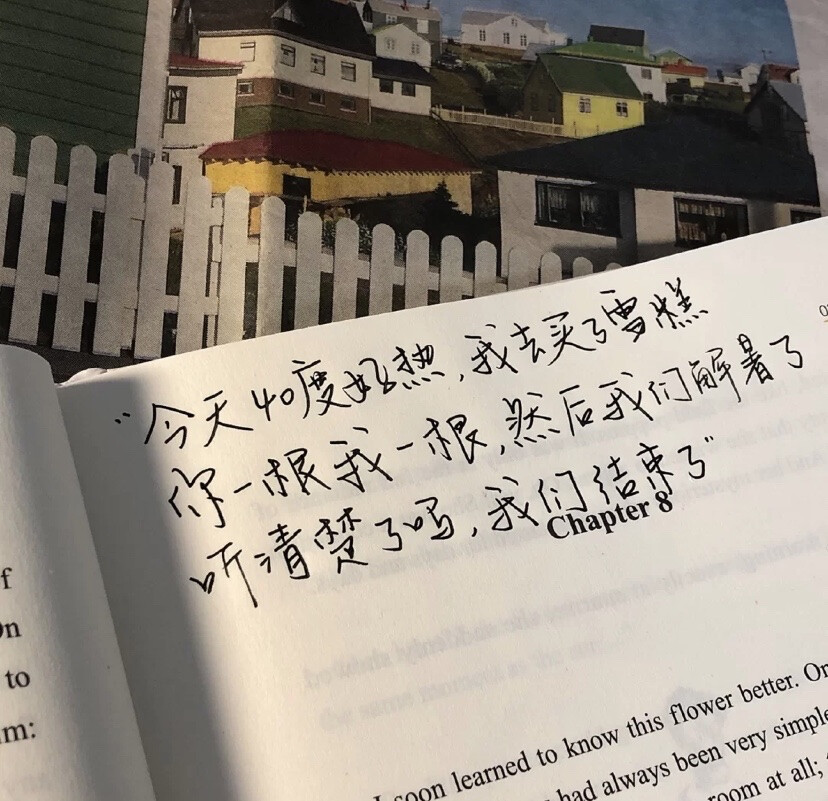 “今天40度好热,我去买了雪糕
你一根我一根,然后我们解暑了
听清楚了吗,我们结束了”
Chapter 8
f
On
to
m:
I soon learned to know this flower better. On
had always been very simple
room at all;